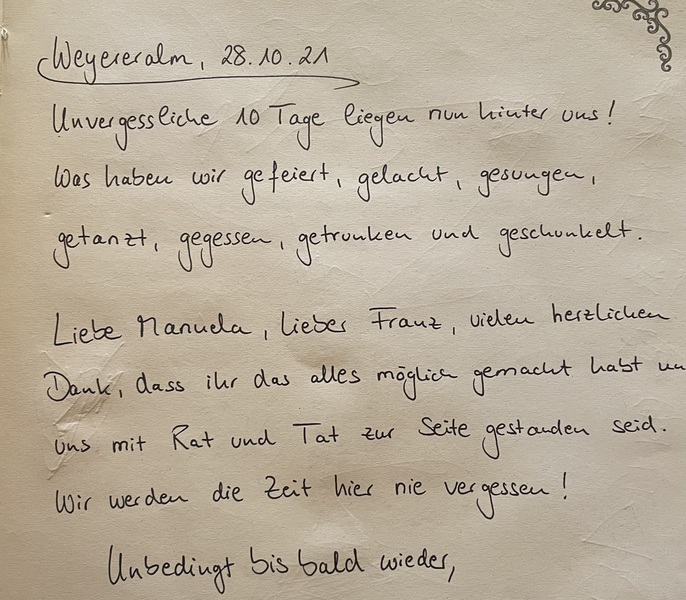 Weyereralm, 28.10.21
Unvergessliche 10 Tage liegen nun hinter uns!
Was haben wir gefeiert, gelacht, gesungen,
getanzt, gegessen, getrunken und geschunkelt.
Liebe Manuela, lieber Franz, vielen herzlichen
Dank, dass ihr das alles möglich gemacht habt un
uns mit Rat und Tat zur Seite gestanden seid.
Wir werden die Zeit hier nie vergessen!
Unbedingt bis bald wieder,